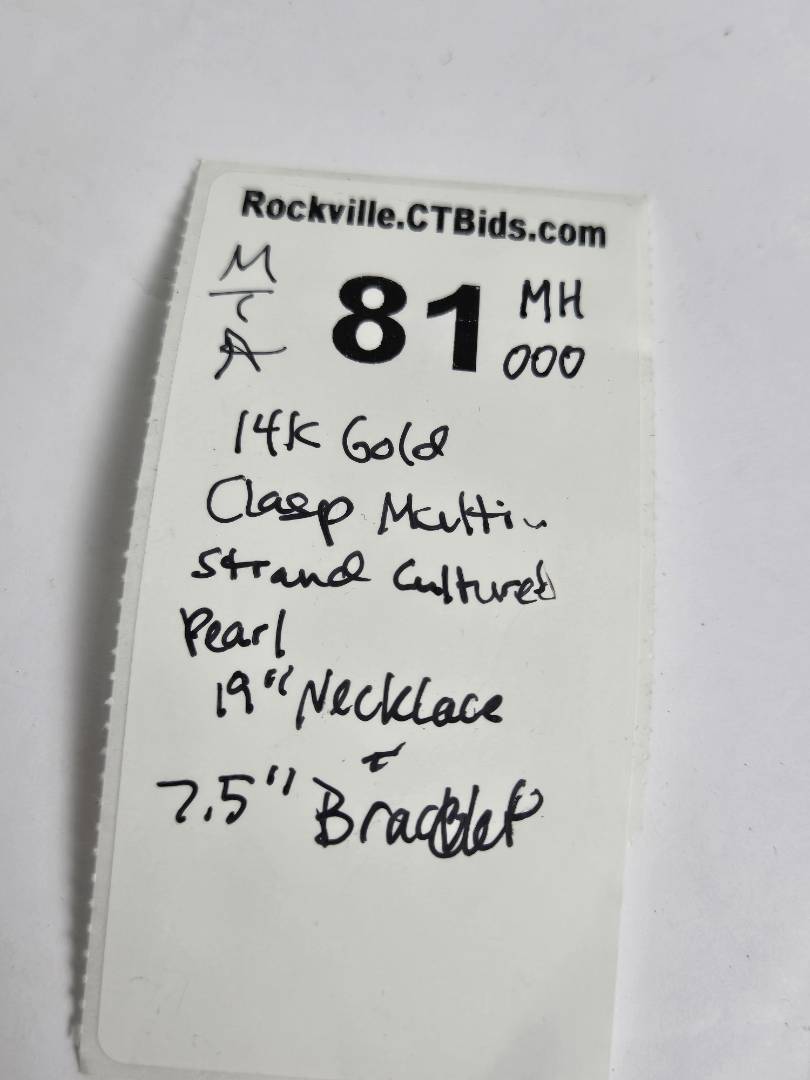 Rockville.CTBids.com
M
A
81
MH
000
14K Gold
Clasp Multi-
Strand Cultured
Pearl
19" Necklace
+
7.5" Bracelet